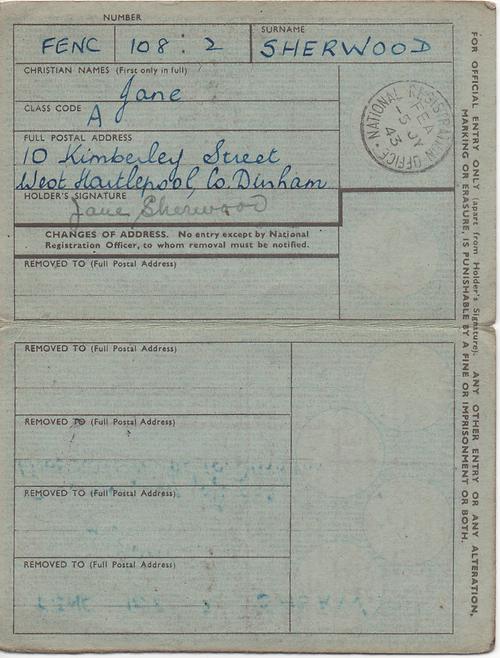 NUMBER
FENC 108 : 2
SURNAME
SHERWOOD
CHRISTIAN NAMES (First only in full)
Jane
CLASS CODE
A
FULL POSTAL ADDRESS
10 Kimberley Street
West Hartlepool, Co. Durham
HOLDER'S SIGNATURE
Jane Sherwood
NATIONAL REGISTRATION OFFICE
FEA
-5 JY
43
CHANGES OF ADDRESS. No entry except by National
Registration Officer, to whom removal must be notified.
REMOVED TO (Full Postal Address)
REMOVED TO (Full Postal Address)
REMOVED TO (Full Postal Address)
REMOVED TO (Full Postal Address)
REMOVED TO (Full Postal Address)
FOR OFFICIAL ENTRY ONLY (apart from Holder's Signature). ANY OTHER ENTRY OR ANY ALTERATION,
MARKING OR ERASURE, IS PUNISHABLE BY A FINE OR IMPRISONMENT OR BOTH.